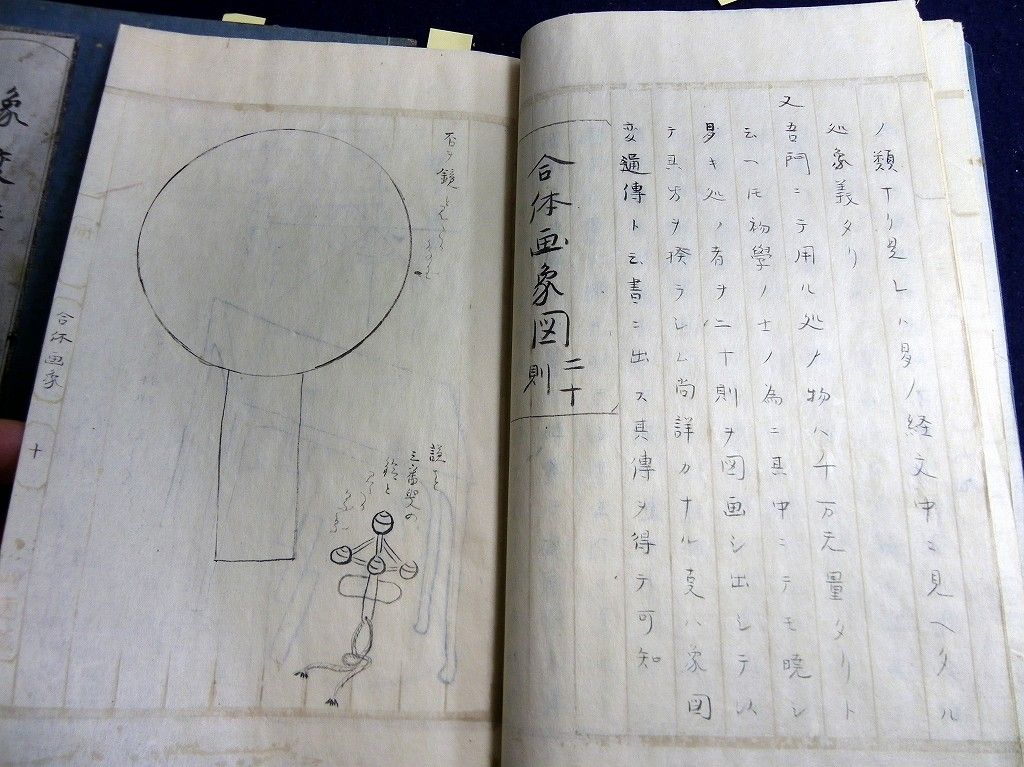 ノ類ナリ見レハ易ノ経文中ニ見ヘタル
処象義タリ
又吾門ニテ用ル処ノ物ハ千万无量タリト
云ヘ𪜈初學ノ士ノ為ニ其中ニテモ曉シ
易キ処ノ者ヲ二十則ヲ図画シ出シテ以
テ其方ヲ揆ラシム尚詳カナル㕝ハ象図
変通傳ト云書ニ出ス其傳ヲ得テ可知
合体画象図二十則
三番叟の
鈴と
合体画象
十